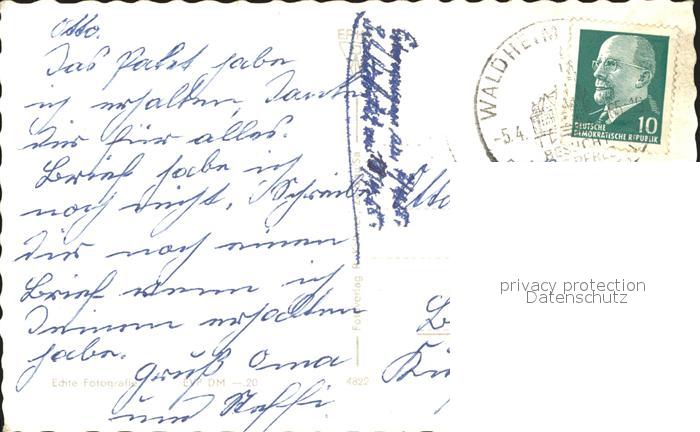 Otto.
Das Paket habe
ich erhalten, Danke
dir für alles.
Brief habe ich
noch nicht. Schreibe
dir noch einen
Brief wenn ich
Deinen erhalten
habe.
Gruß Oma
und Steffi.
Echte Fotografie EVP DM —.20
4822
Otto
WALDHEIM
-5.4.
10
DEUTSCHE
DEMOKRATISCHE REPUBLIK
privacy protection
Datenschutz